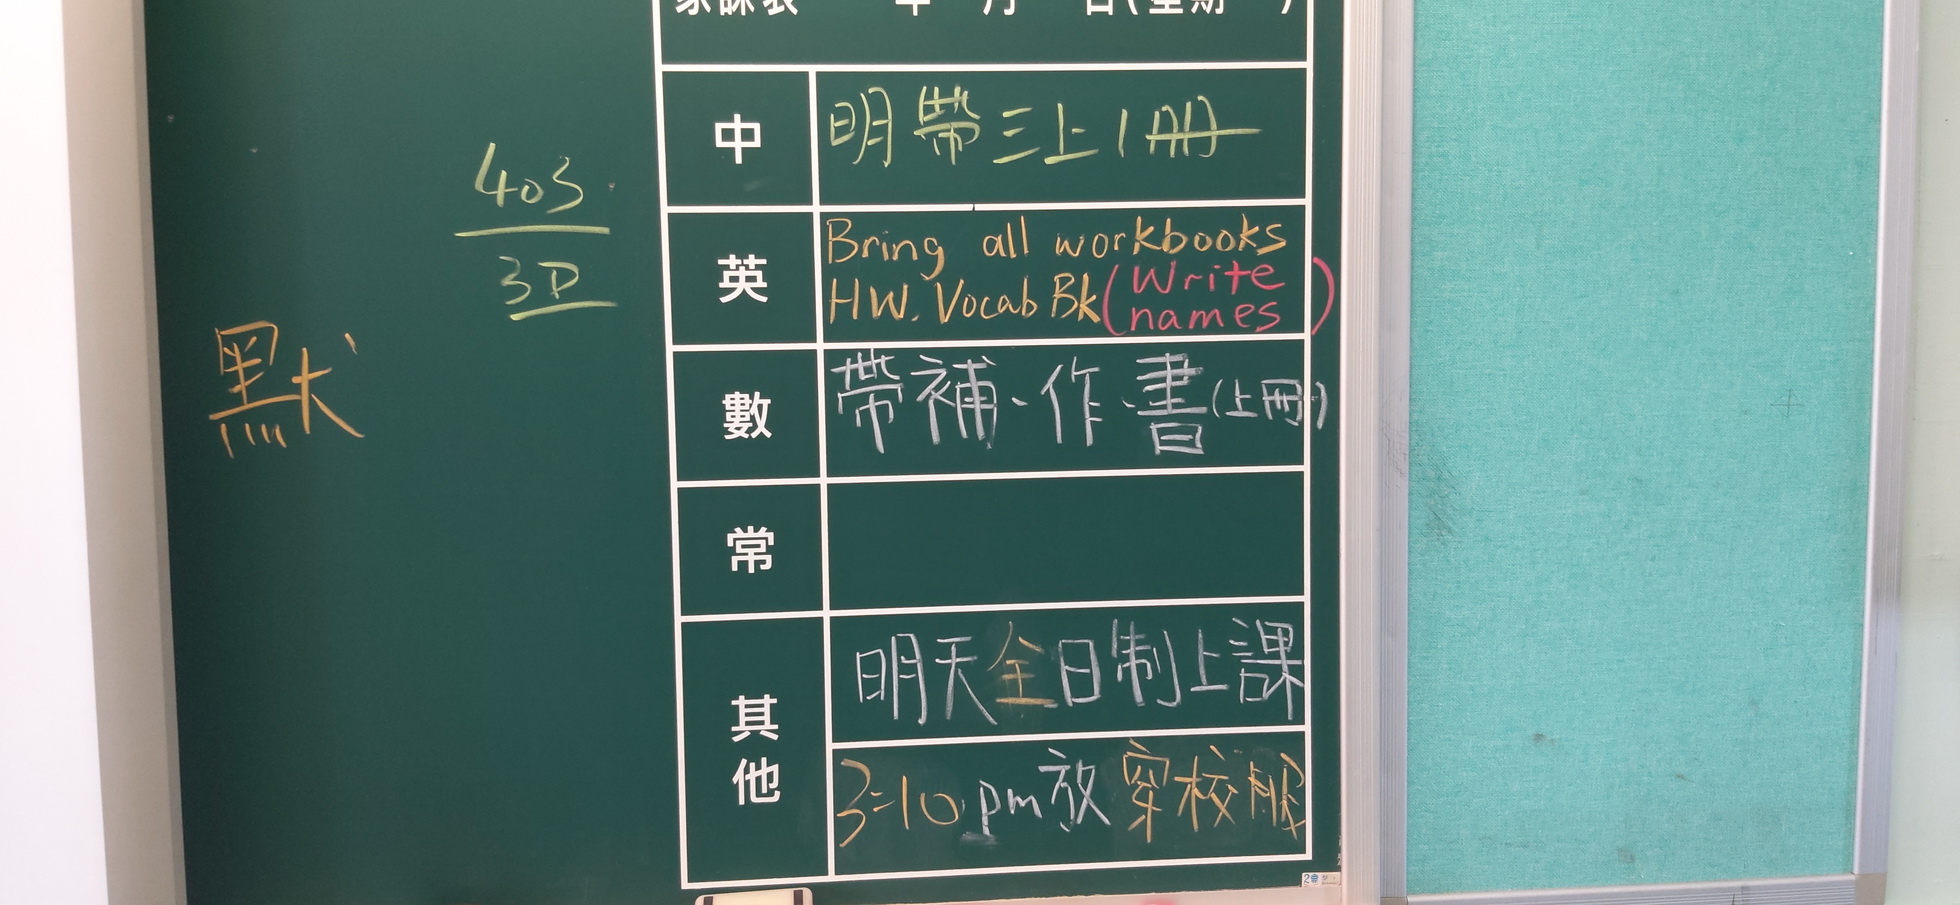 家課表 年 月 日(星期 )
中 明帶三上1冊
英 Bring all workbooks
HW. Vocab Bk (Write names)
數 帶補、作、書(上冊)
常
其他 明天全日制上課
3:10 pm放 穿校服
403
3D
默